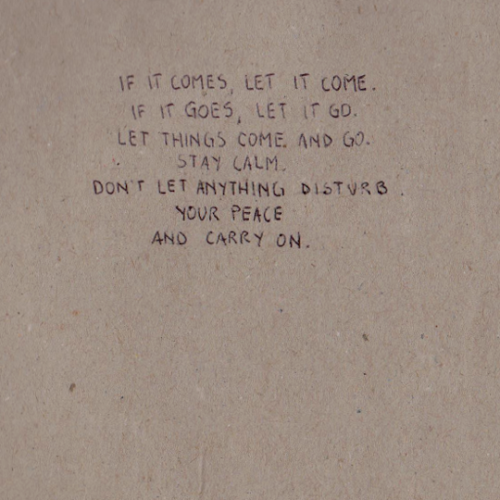 IF IT COMES, LET IT COME.
IF IT GOES, LET IT GO.
LET THINGS COME AND GO.
STAY CALM.
DON'T LET ANYTHING DISTURB.
YOUR PEACE
AND CARRY ON.